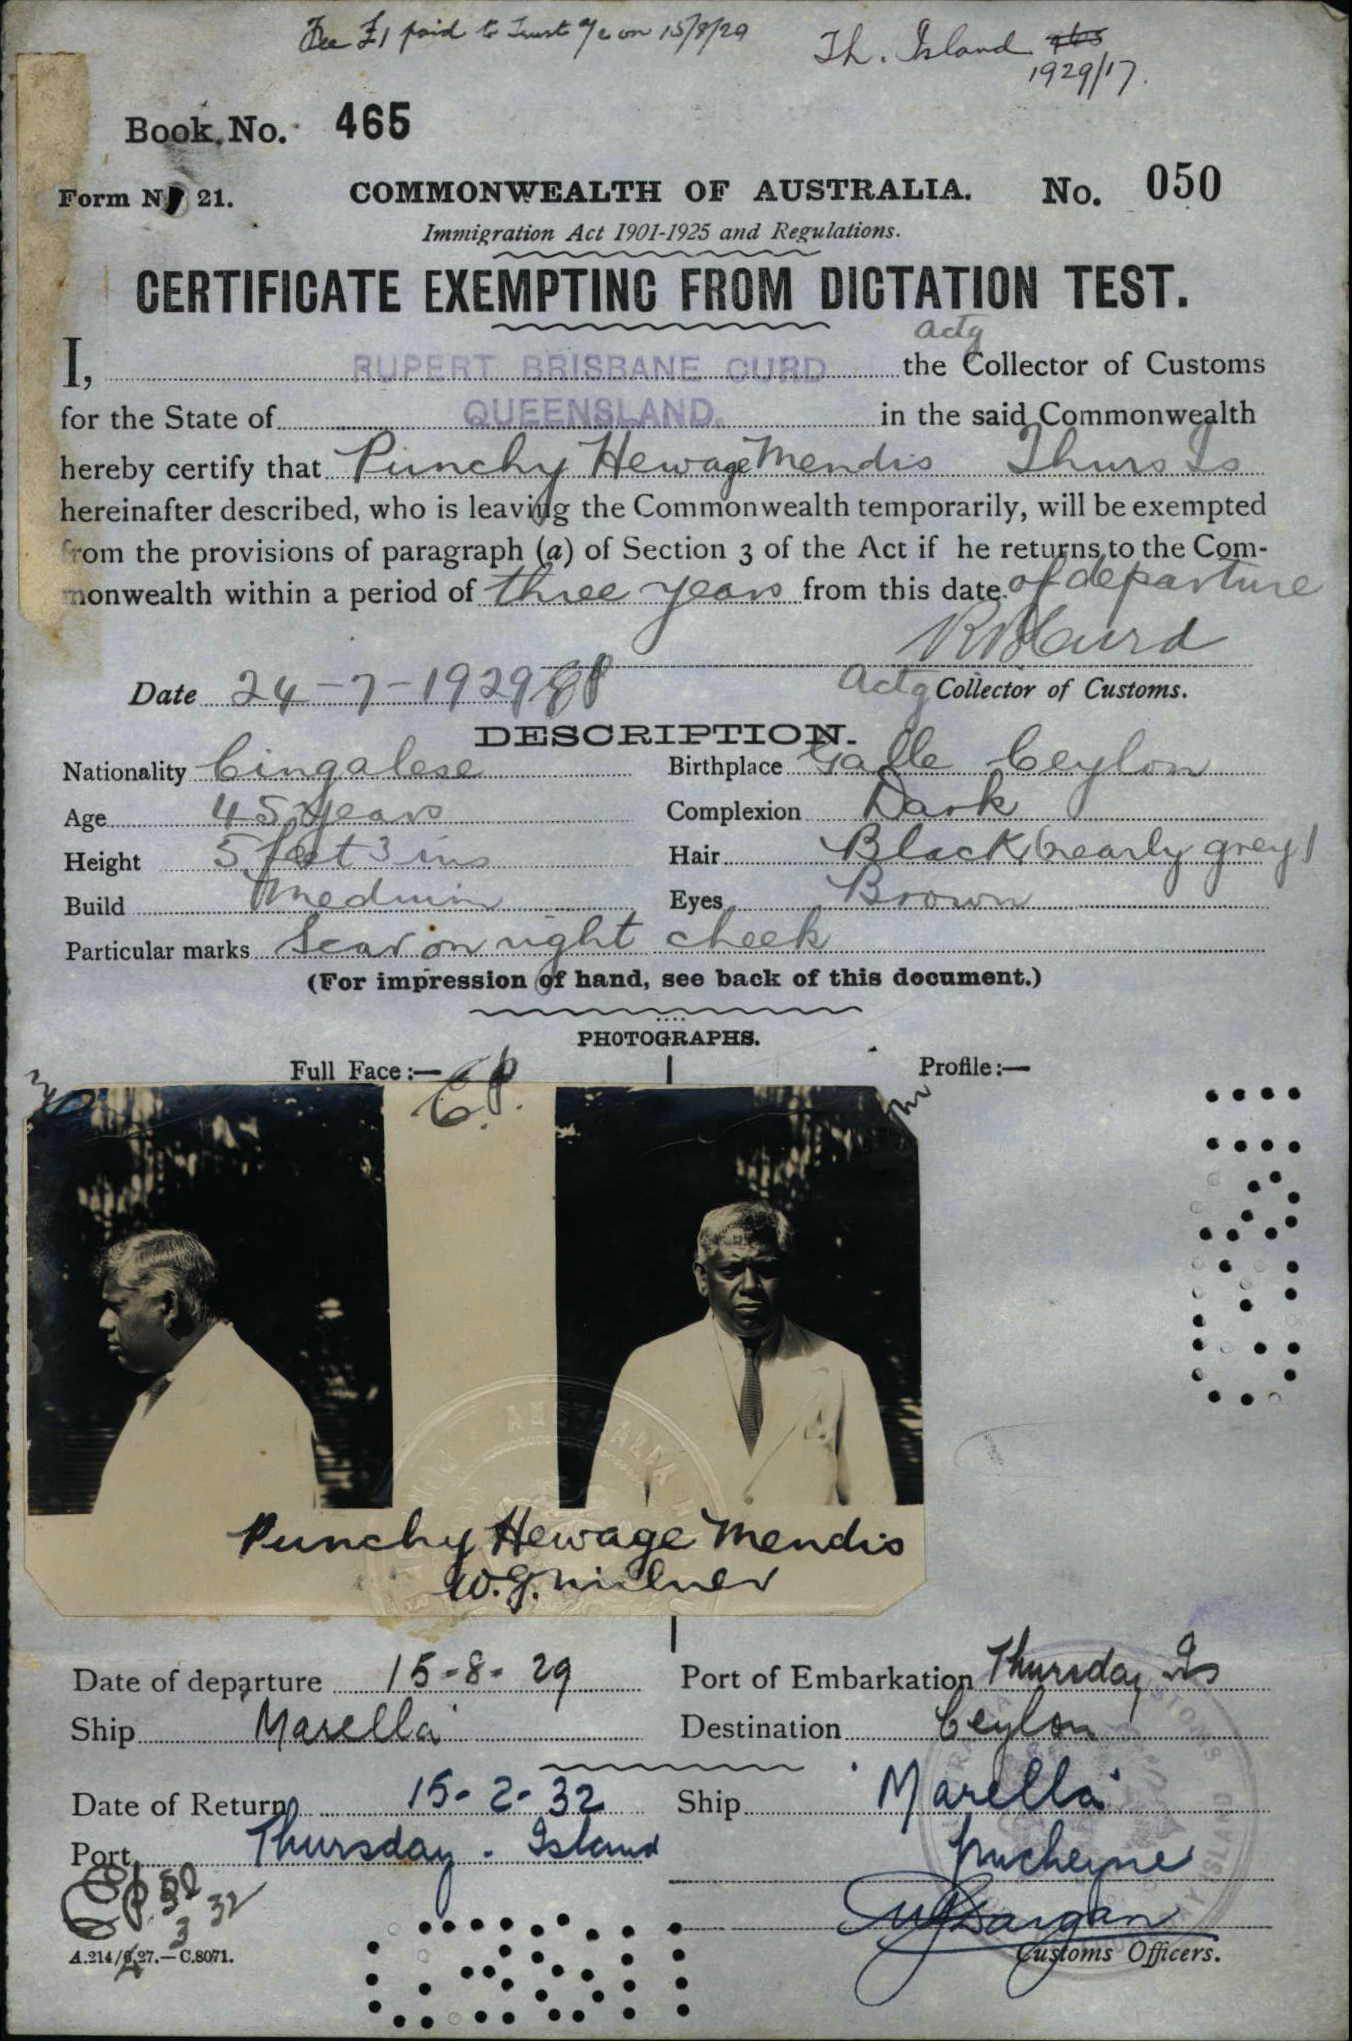 Fee £1 paid to Trust a/c on 15/8/29
Th. Island 465
1929/17.
Book No. 465
Form No 21.
COMMONWEALTH OF AUSTRALIA. No. 050
Immigration Act 1901-1925 and Regulations.
CERTIFICATE EXEMPTING FROM DICTATION TEST.
actg
I, RUPERT BRISBANE CURD the Collector of Customs
for the State of QUEENSLAND. in the said Commonwealth
hereby certify that Punchy Hewage Mendis Thurs Is
hereinafter described, who is leaving the Commonwealth temporarily, will be exempted
from the provisions of paragraph (a) of Section 3 of the Act if he returns to the Com-
monwealth within a period of three years from this date of departure
RBCurd
Date 24-7-1929 Actg Collector of Customs.
DESCRIPTION.
Nationality Cingalese Birthplace Galle Ceylon
Age 45 years Complexion Dark
Height 5 feet 3 ins Hair Black (nearly grey)
Build Medium Eyes Brown
Particular marks Scar on right cheek
(For impression of hand, see back of this document.)
PHOTOGRAPHS.
Full Face:— Profile:—
Punchy Hewage Mendis
W.G. Milner
Date of departure 15-8-29 Port of Embarkation Thursday Is
Ship Marella Destination Ceylon
Date of Return 15-2-32 Ship "Marella"
Port Thursday. Island
Customs Officers.
A.214/6.27.—C.8071.